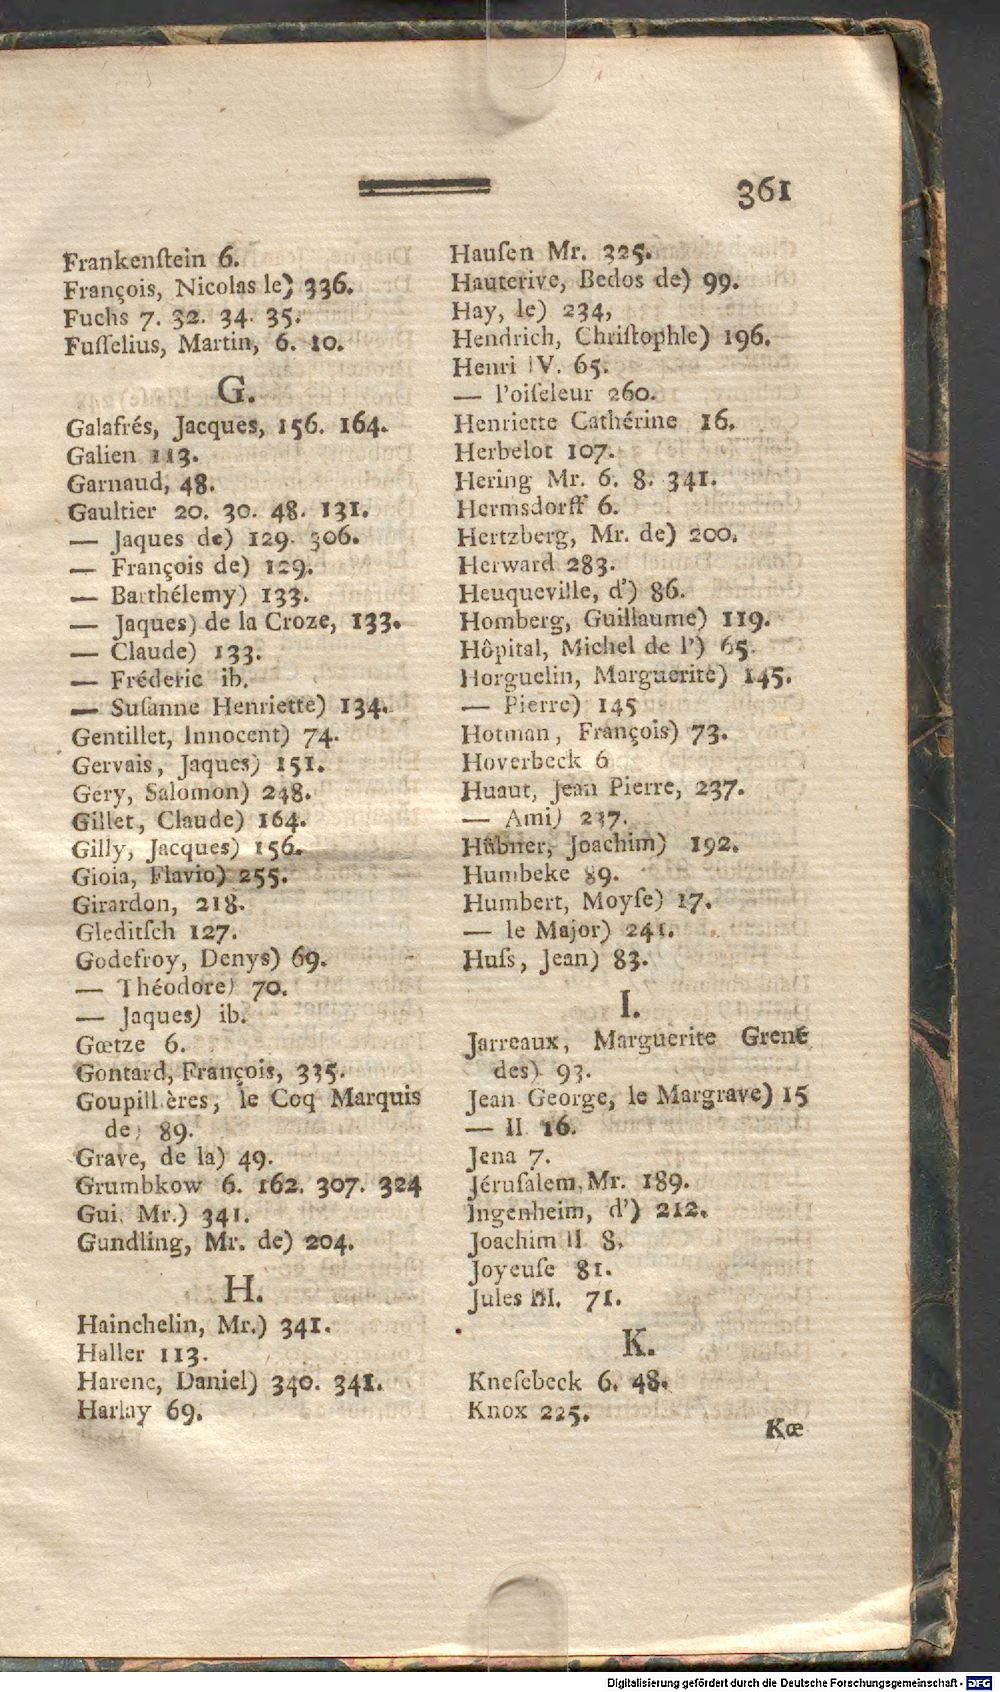 361
Frankenſtein 6.
François, Nicolas le) 336.
Fuchs 7. 32. 34. 35.
Fuſſelius, Martin, 6. 10.
G.
Galafrés, Jacques, 156. 164.
Galien 113.
Garnaud, 48.
Gaultier 20. 30. 48. 131.
— Jaques de) 129. 306.
— François de) 129.
— Barthélemy) 133.
— Jaques) de la Croze, 133.
— Claude) 133.
— Fréderic ib.
— Suſanne Henriette) 134.
Gentillet, Innocent) 74.
Gervais, Jaques) 151.
Gery, Salomon) 248.
Gillet, Claude) 164.
Gilly, Jacques) 156.
Gioia, Flavio) 255.
Girardon, 218.
Gleditſch 127.
Godefroy, Denys) 69.
— Théodore) 70.
— Jaques) ib.
Gœtze 6.
Gontard, François, 335.
Goupillères, le Coq Marquis
de) 89.
Grave, de la) 49.
Grumbkow 6. 162. 307. 324
Gui. Mr.) 341.
Gundling, Mr. de) 204.
H.
Hainchelin, Mr.) 341.
Haller 113.
Harenc, Daniel) 340. 341.
Harlay 69.
Hauſen Mr. 325.
Hauterive, Bedos de) 99.
Hay, le) 234,
Hendrich, Chriſtophle) 196.
Henri IV. 65.
— l'oiſeleur 260.
Henriette Cathérine 16.
Herbelot 107.
Hering Mr. 6. 8. 341.
Hermsdorff 6.
Hertzberg, Mr. de) 200.
Herward 283.
Heuqueville, d') 86.
Homberg, Guillaume) 119.
Hôpital, Michel de l') 65.
Horguelin, Marguerite) 145.
— Pierre) 145
Hotman, François) 73.
Hoverbeck 6
Huaut, Jean Pierre, 237.
— Ami) 237.
Hübner, Joachim) 192.
Humbeke 89.
Humbert, Moyſe) 17.
— le Major) 241.
Huſs, Jean) 83.
I.
Jarreaux, Marguerite Grené
des) 93.
Jean George, le Margrave) 15
— II. 16.
Jena 7.
Jéruſalem, Mr. 189.
Ingenheim, d') 212.
Joachim II 8.
Joyeuſe 81.
Jules III. 71.
K.
Kneſebeck 6. 48.
Knox 225.
Kœ
Digitalisierung gefördert durch die Deutsche Forschungsgemeinschaft - DFG